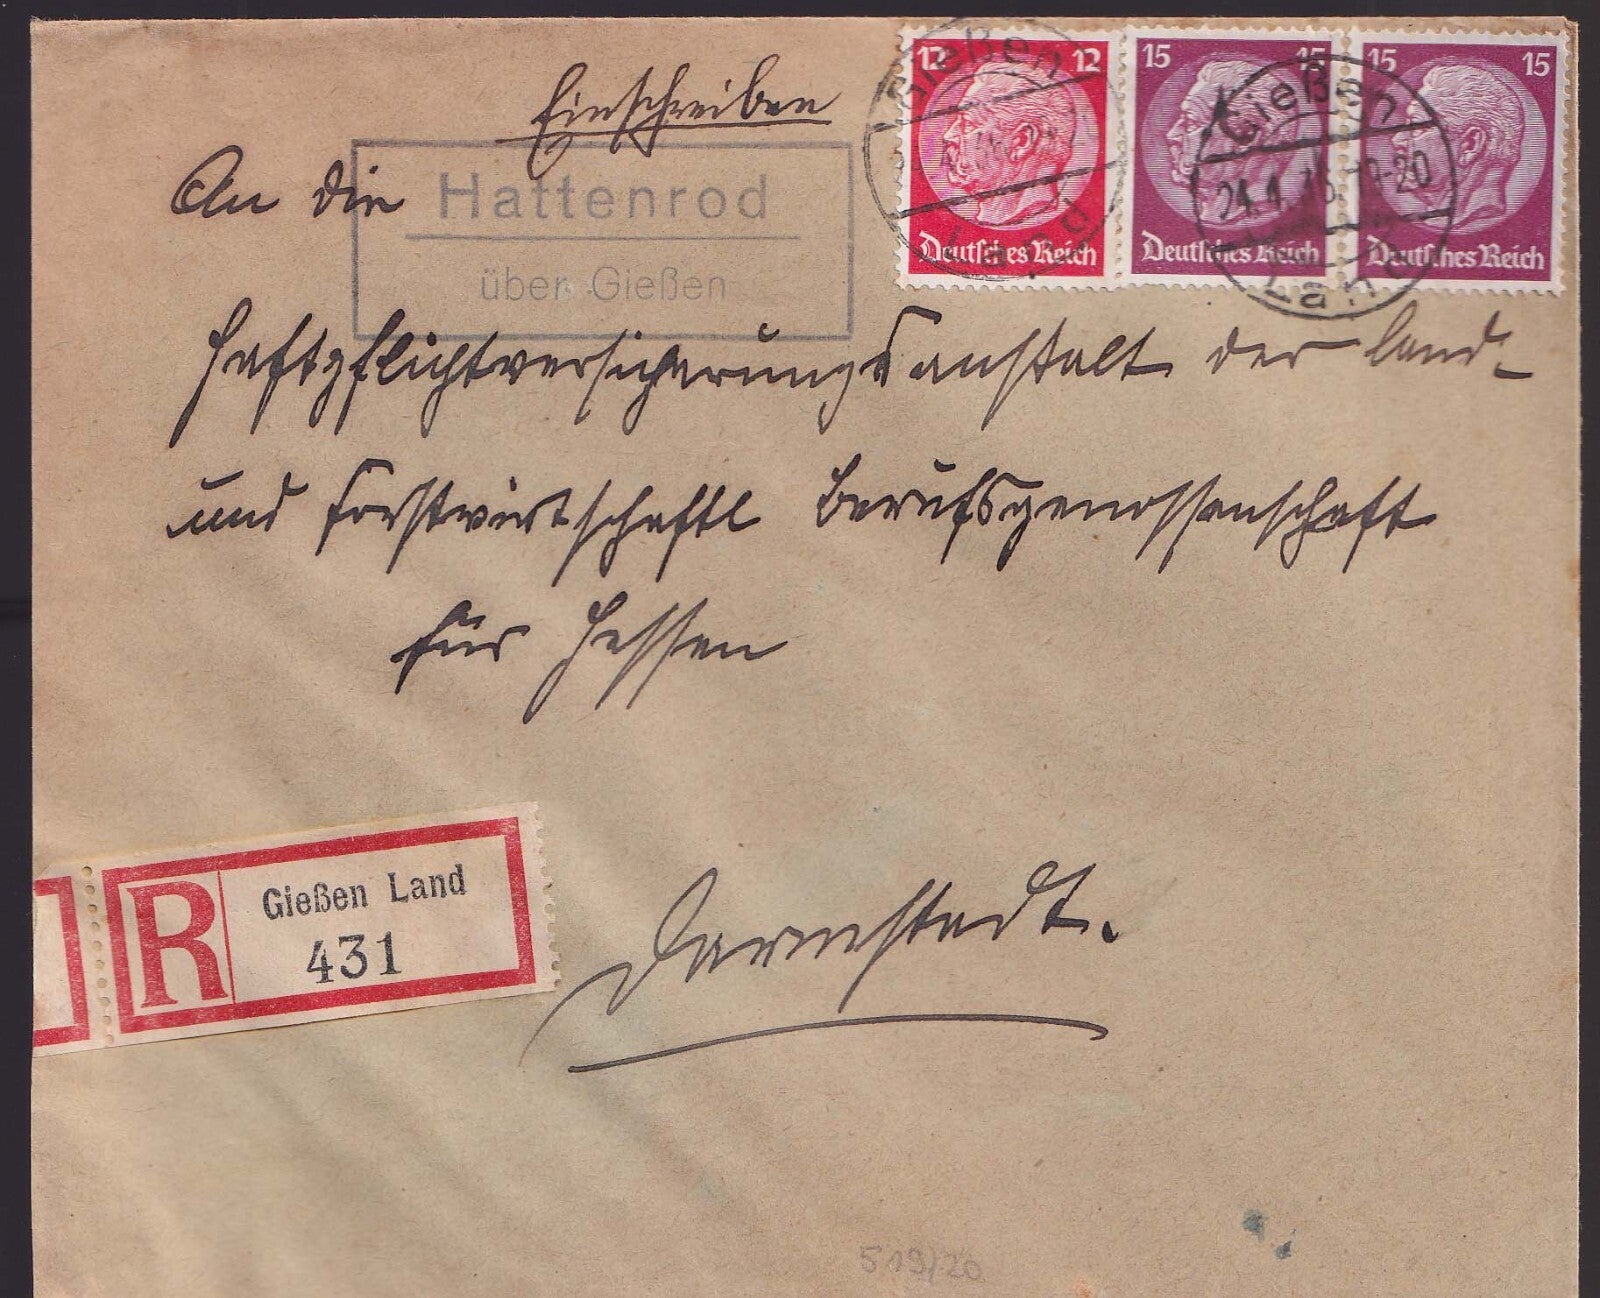 Einschreiben
An die
Hattenrod
über Gießen
12 12
Deutsches Reich
15 15
Deutsches Reich
15 15
Deutsches Reich
Gießen
Land
Gießen
19-20
Land
Haftpflichtversicherungsanstalt der land-
und forstwirtschaftl Berufsgenossenschaft
für Hessen
R
Gießen Land
431
Darmstadt.
519/20